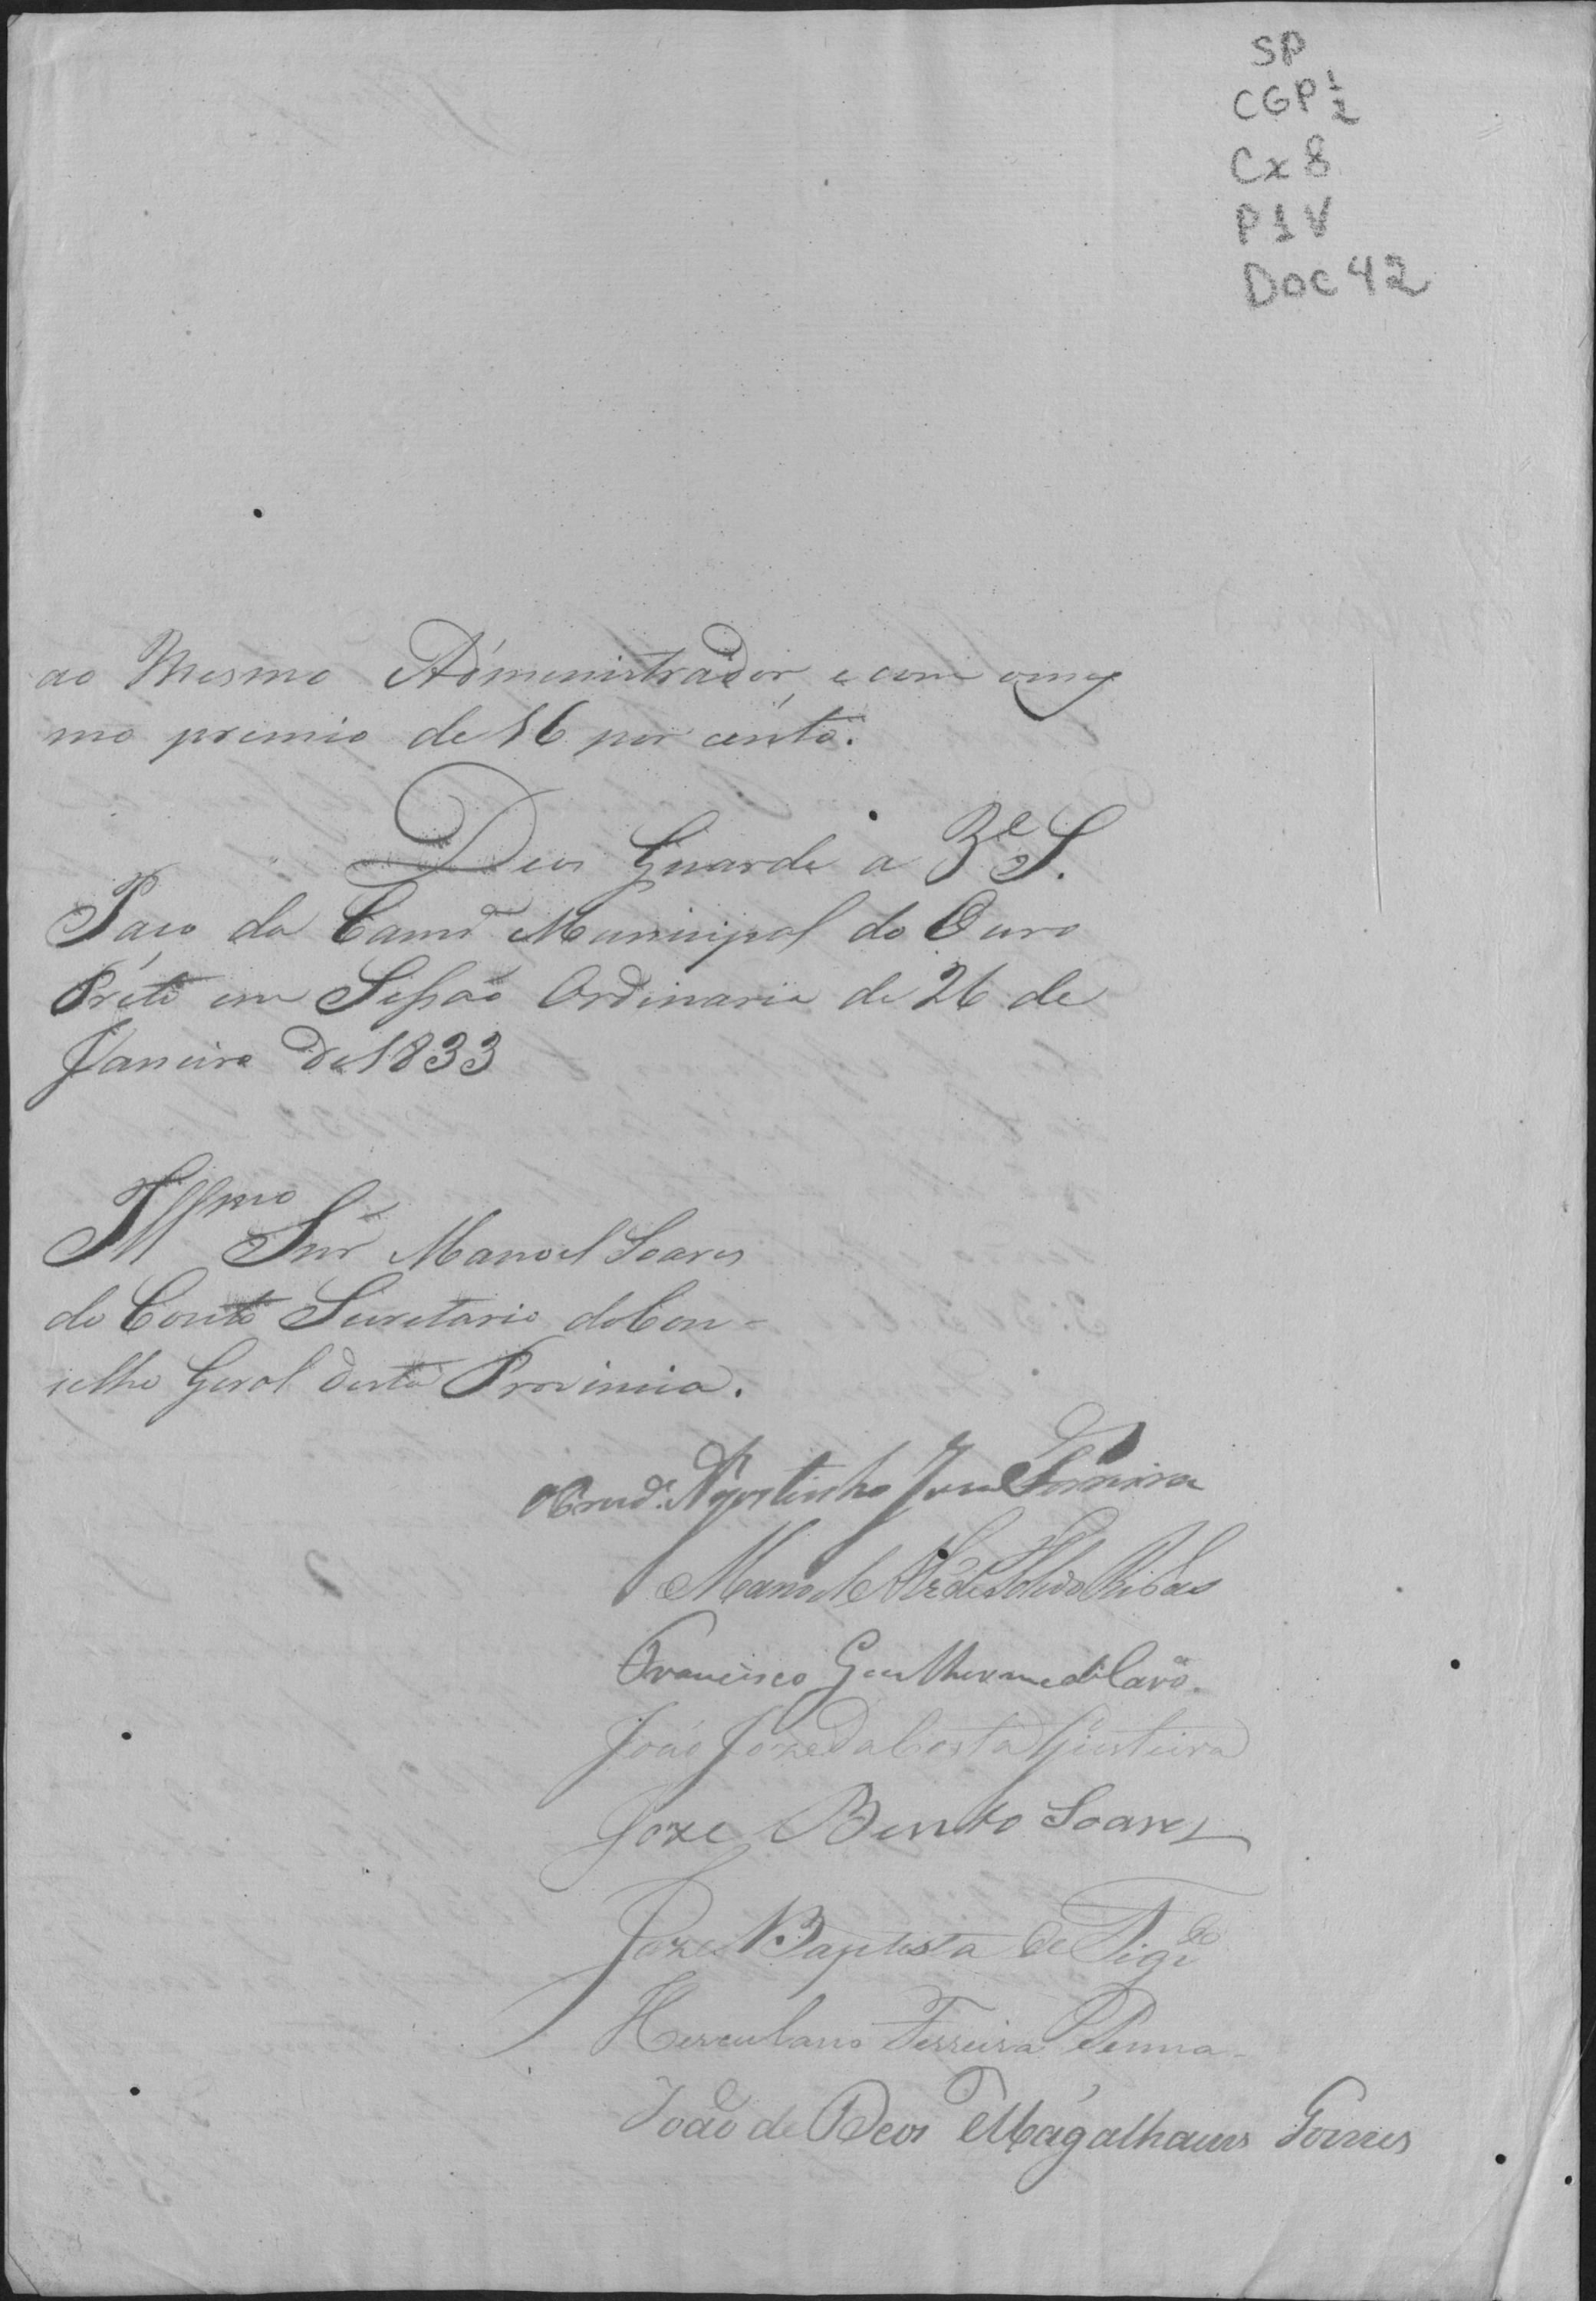 SP
CGP 1/2
Cx 8
P1V
Doc 42
ao Mesmo Administrador, e com omes
mo premio de 16 por cento.
Deos Guarde a V.ª S.
Paço da Camr.ª Municipal do Ouro
Prêto em Sessão Ordinaria de 26 de
Janeiro de 1833
Illmo Snr Manoel Soares
do Couto Secretario do Con-
selho Geral desta Provincia.
Agostinho José Ferreira
Manoel
Francisco Guilherme de Carv.º
João Jozé da Costa
Joze Bento Soares
Joze Baptista de Figdo
Herculano Ferreira Penna
João de Deos Magalhaens Gomes